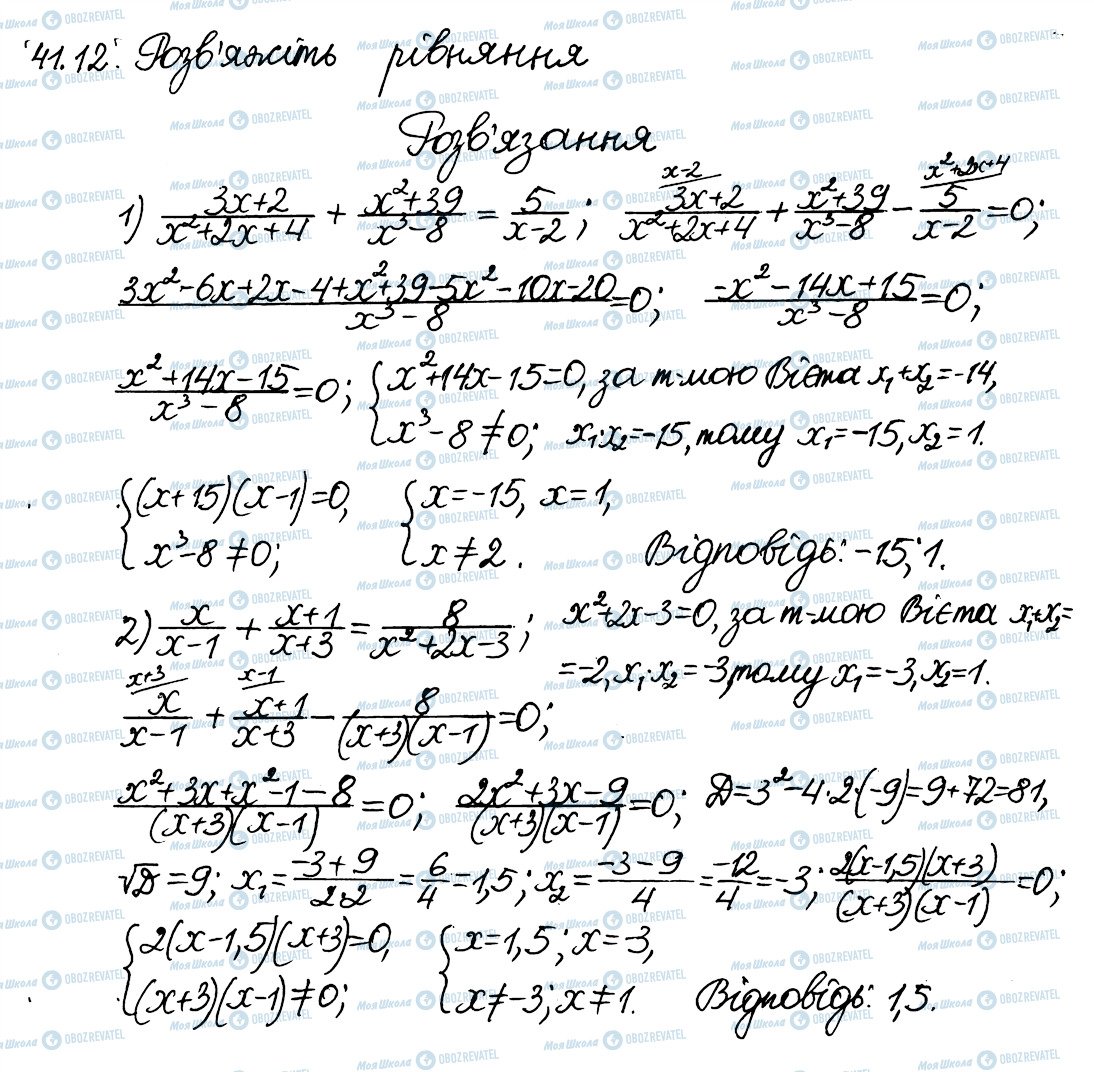 41.12. Розв'яжіть рівняння
Розв'язання
1) (3x+2)/(x²+2x+4) + (x²+39)/(x³-8) = 5/(x-2); (3x+2)^(x-2)/(x²+2x+4) + (x²+39)/(x³-8) - 5^(x²+2x+4)/(x-2) = 0;
(3x²-6x+2x-4+x²+39-5x²-10x-20)/(x³-8) = 0; (-x²-14x+15)/(x³-8) = 0;
(x²+14x-15)/(x³-8) = 0; { x²+14x-15=0, за т-мою Вієта x₁+x₂=-14,
x³-8≠0; x₁·x₂=-15, тому x₁=-15, x₂=1.
{ (x+15)(x-1)=0, { x=-15, x=1,
x³-8≠0; x≠2. Відповідь: -15; 1.
2) x/(x-1) + (x+1)/(x+3) = 8/(x²+2x-3); x²+2x-3=0, за т-мою Вієта x₁+x₂=
=-2, x₁·x₂=-3, тому x₁=-3, x₂=1.
x^(x+3)/(x-1) + (x+1)^(x-1)/(x+3) - 8/((x+3)(x-1)) = 0;
(x²+3x+x²-1-8)/((x+3)(x-1)) = 0; (2x²+3x-9)/((x+3)(x-1)) = 0; D=3²-4·2·(-9)=9+72=81,
√D=9; x₁=(-3+9)/(2·2)=6/4=1,5; x₂=(-3-9)/4=-12/4=-3; 2(x-1,5)(x+3)/((x+3)(x-1))=0;
{ 2(x-1,5)(x+3)=0, { x=1,5; x=-3,
(x+3)(x-1)≠0; x≠-3; x≠1. Відповідь: 1,5.